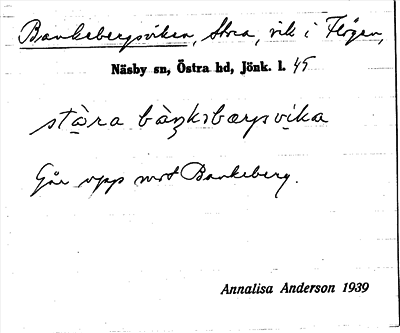 Bankebergsviken, Stora, vik i Flögen,
Näsby sn, Östra hd, Jönk. l. 45
stòra bàŋkɩbærgsvika
Går upp mot Bankeberg.
Annalisa Anderson 1939